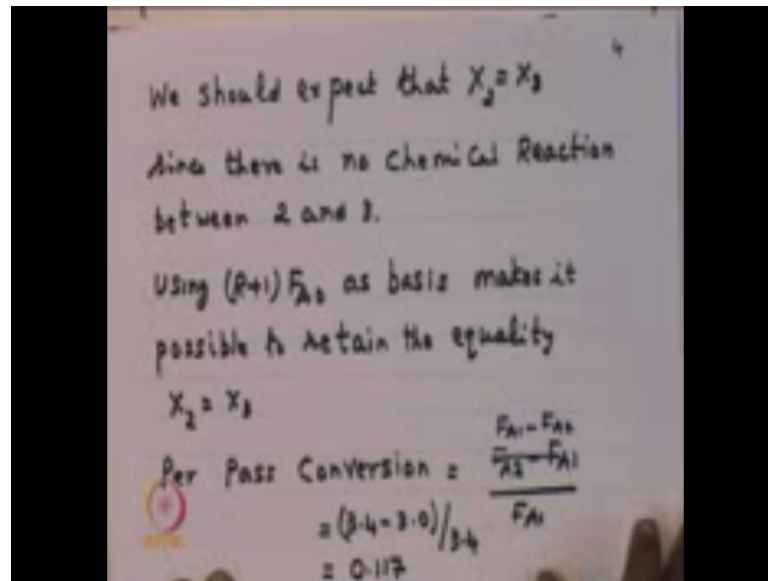 4
We should expect that X₂ = X₃
since there is no Chemical Reaction
between 2 and 3.
Using (R+1) F_A0 as basis makes it
possible to retain the equality
X₂ = X₃
F_A1 - F_A2
Per Pass Conversion = F_A2 - F_A1 / F_A1
= (3.4 - 3.0)/3.4
= 0.117